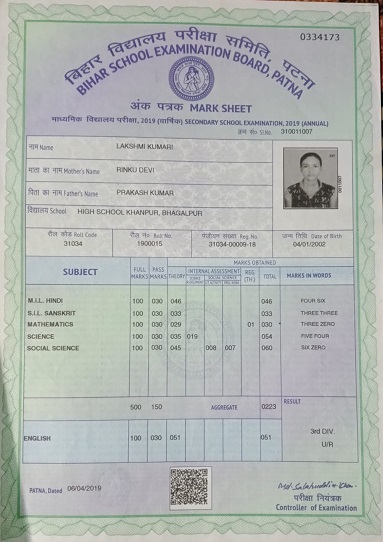 0334173
बिहार विद्यालय परीक्षा समिति, पटना
BIHAR SCHOOL EXAMINATION BOARD, PATNA
अंक पत्रक MARK SHEET
माध्यमिक विद्यालय परीक्षा, 2019 (वार्षिक) SECONDARY SCHOOL EXAMINATION, 2019 (ANNUAL)
क्रम सं० Sl.No. 310011007
नाम Name LAKSHMI KUMARI
माता का नाम Mother's Name RINKU DEVI
पिता का नाम Father's Name PRAKASH KUMAR
विद्यालय School HIGH SCHOOL KHANPUR, BHAGALPUR
रौल कोड Roll Code रौल नं० Roll No. पंजीयन संख्या Reg. No. जन्म तिथि Date of Birth
31034 1900015 31034-00009-18 04/01/2002
MARKS OBTAINED
SUBJECT FULL MARKS PASS MARKS THEORY INTERNAL ASSESSMENT REG (TH.) TOTAL MARKS IN WORDS
M.I.L. HINDI 100 030 046 046 FOUR SIX
S.I.L. SANSKRIT 100 030 033 033 THREE THREE
MATHEMATICS 100 030 029 01 030 * THREE ZERO
SCIENCE 100 030 035 019 054 FIVE FOUR
SOCIAL SCIENCE 100 030 045 008 007 060 SIX ZERO
500 150 AGGREGATE 0223 RESULT
3rd DIV.
ENGLISH 100 030 051 051 U/R
PATNA, Dated 06/04/2019
परीक्षा नियंत्रक
Controller of Examination